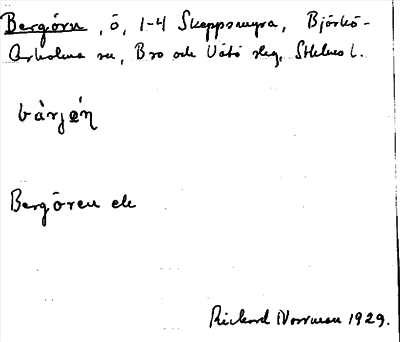 Bergörn, ö, 1-4 Skeppsmyra, Björkö-
Arholma sn, Bro och Vätö slg, Sthlms l.
bàrjǿn
Bergören ek
Rickard Norrman 1929.